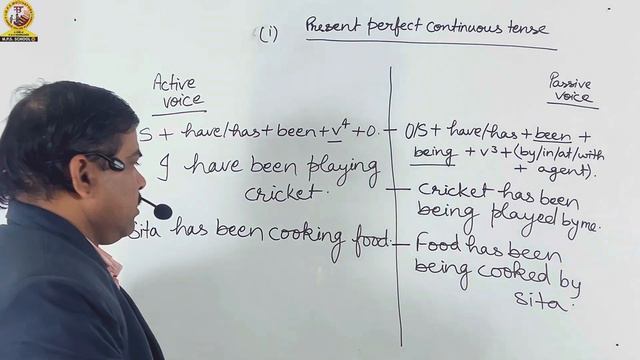 (i) Present perfect continuous tense
Active
voice
S + have/has + been + v⁴ + O.
I have been playing
cricket.
Sita has been cooking food.
Passive
voice
O/S + have/has + been +
being + v³ + (by/in/at/with
+ agent).
Cricket has been
being played by me.
Food has been
being cooked by
Sita.
M.P.S. SCHOOL